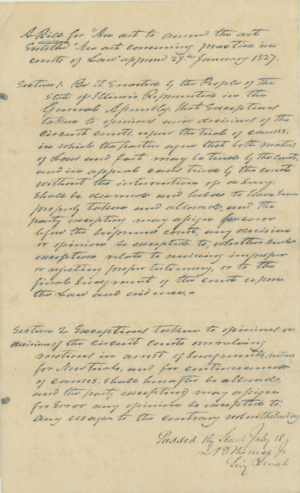 A Bill for "An act to amend the act
Entitled "An act concerning practice in
courts of Law" approved 29th January 1827.
Section 1. Be it Enacted by the People of the
State of Illinois Represented in the
General Assembly, That Exceptions
taken to opinions and decisions of the
circuit courts, upon the trial of causes,
in which the parties agree that both matters
of Law and fact may be tried by the court,
and in appeal cases tried by the court
without the intervention of a jury,
shall be deemed and held to have been
properly taken and allowed, and the
party excepting may assign for error
before the supreme court, any decision
or opinion so excepted to, whether such
exception relate to receiving improper
or rejecting proper testimony, or to the
final Judgment of the court upon
the Law and evidence.
Section 2 Exceptions taken to opinions or
decisions of the circuit courts overruling
motions in arrest of Judgment, motions
for New trials, and for continuances
of causes, shall hereafter be allowed,
and the party excepting may assign
for Error any opinions so excepted to,
any usage to the contrary notwithstanding
Passed the Senate July 18,